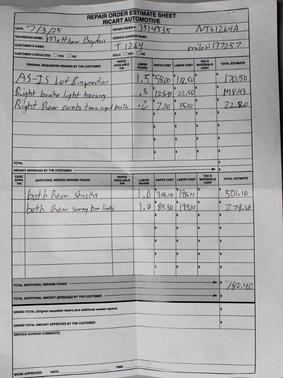 REPAIR ORDER ESTIMATE SHEET
RICART AUTOMOTIVE
DATE: 7/3/25 REPAIR ORDER #: 3514535 NTS1264A
TECHNICIAN NAME: Matthew SERVICE ADVISOR NAME:
CUSTOMER'S NAME: T1264 miles: 177257
CUSTOMER CONTACTED: YES NO
ORIGINAL REQUESTED REPAIRS BY THE CUSTOMER PARTS AVAILABLE Y/N LABOR HOURS PARTS COST LABOR COST TAX & MATERIALS COST TOTAL ESTIMATE
AS-IS Lot Inspection 1.5 58.00 112.50 170.50
Right brake light housing .3 22.50
Right Rear turn signal bulb .2 7.20 15.00 22.20
TOTAL
AMOUNT APPROVED BY THE CUSTOMER
ADDITIONAL NEEDED REPAIRS FOUND PARTS AVAILABLE Y/N LABOR HOURS PARTS COST LABOR COST TAX & MATERIALS COST TOTAL ESTIMATE
both Rear shocks 1.0 306.10 195.00 501.10
both Rear sway bar links 1.0 84.30 195.00 279.30
TOTAL ADDITIONAL REPAIRS FOUND 780.40
TOTAL ADDITIONAL AMOUNT APPROVED BY THE CUSTOMER
GRAND TOTAL (Original requested repairs plus additional needed repairs)
GRAND TOTAL AMOUNT APPROVED BY THE CUSTOMER
SERVICE ADVISOR COMMENTS:
WORK APPROVED: DATE TIME